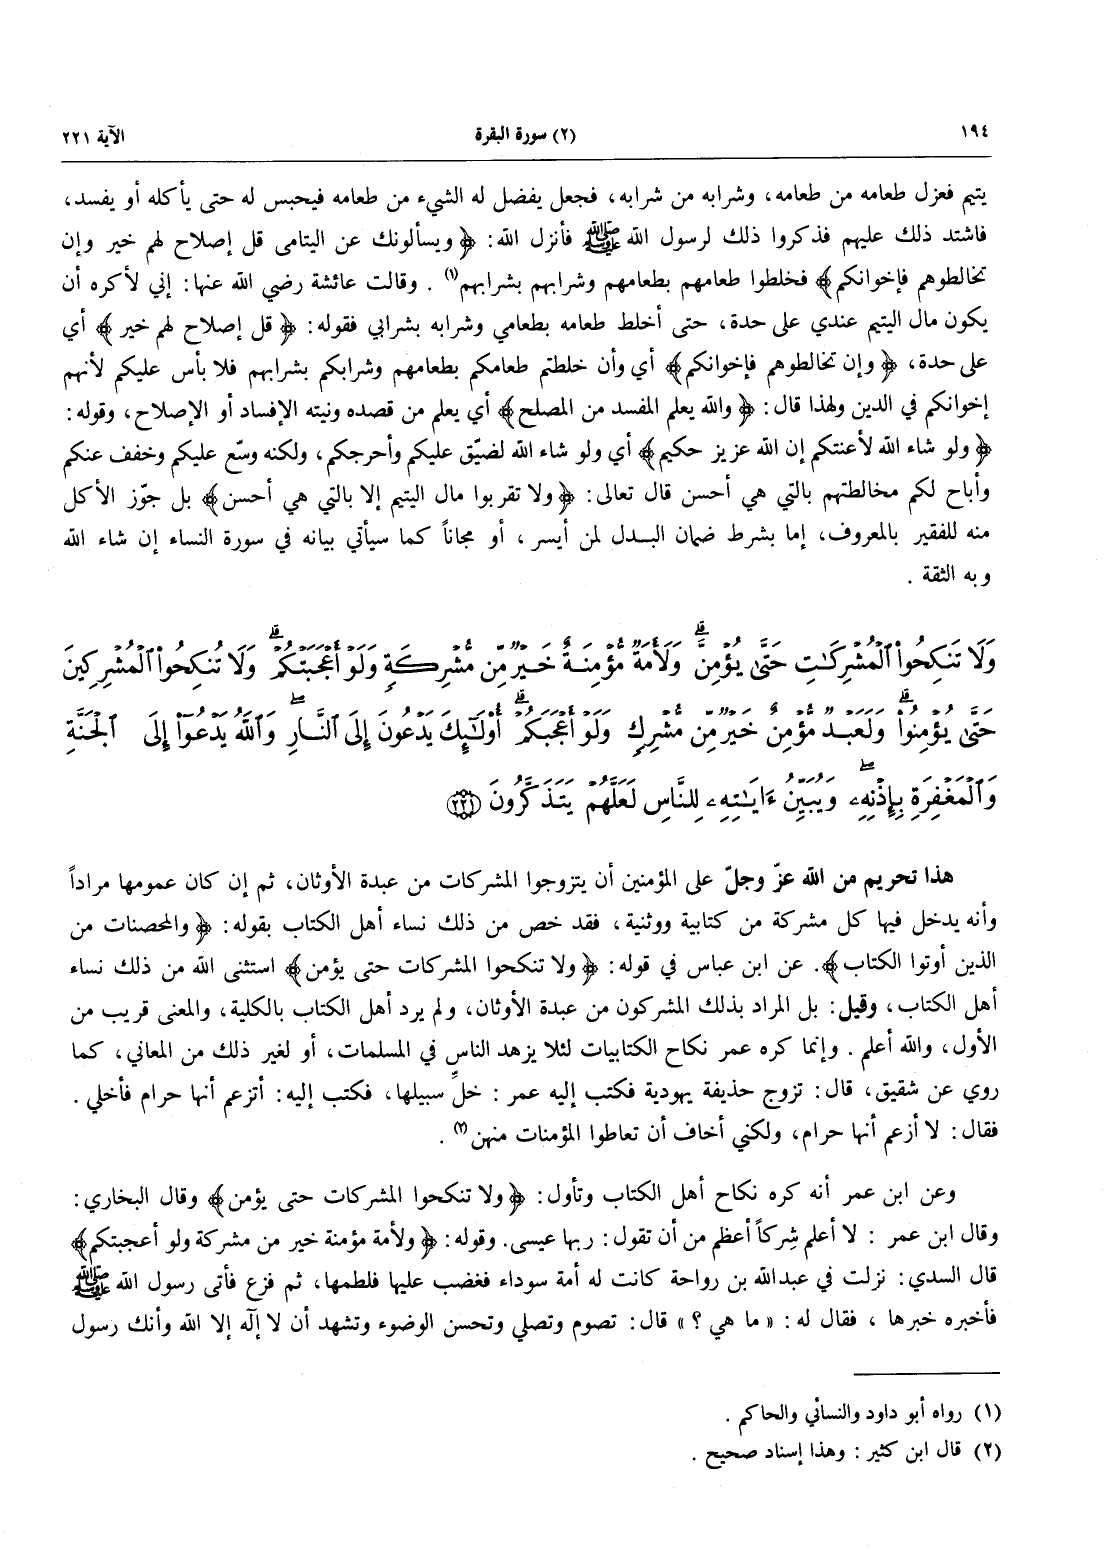 ١٩٤ (٢) سورة البقرة الآية ٢٢١
يتيم فعزل طعامه من طعامه، وشرابه من شرابه، فجعل يفضل له الشيء من طعامه فيحبس له حتى يأكله أو يفسد،
فاشتد ذلك عليهم فذكروا ذلك لرسول الله ﷺ فأنزل الله: ﴿ويسألونك عن اليتامى قل إصلاح لهم خير وإن
تخالطوهم فإخوانكم﴾ فخلطوا طعامهم بطعامهم وشرابهم بشرابهم(١) . وقالت عائشة رضي الله عنها: إني لأكره أن
يكون مال اليتيم عندي على حدة، حتى أخلط طعامه بطعامي وشرابه بشرابي فقوله: ﴿قل إصلاح لهم خير﴾ أي
على حدة، ﴿وإن تخالطوهم فإخوانكم﴾ أي وأن خلطتم طعامكم بطعامهم وشرابكم بشرابهم فلا بأس عليكم لأنهم
إخوانكم في الدين ولهذا قال: ﴿والله يعلم المفسد من المصلح﴾ أي يعلم من قصده ونيته الإفساد أو الإصلاح، وقوله:
﴿ولو شاء الله لأعنتكم إن الله عزيز حكيم﴾ أي ولو شاء الله لضيّق عليكم وأحرجكم، ولكنه وسّع عليكم وخفف عنكم
وأباح لكم مخالطتهم بالتي هي أحسن قال تعالى: ﴿ولا تقربوا مال اليتيم إلا بالتي هي أحسن﴾ بل جوّز الأكل
منه للفقير بالمعروف، إما بشرط ضمان البدل لمن أيسر، أو مجاناً كما سيأتي بيانه في سورة النساء إن شاء الله
وبه الثقة .
وَلَا تَنكِحُوا۟ ٱلْمُشْرِكَـٰتِ حَتَّىٰ يُؤْمِنَّ ۚ وَلَأَمَةٌ مُّؤْمِنَةٌ خَيْرٌ مِّن مُّشْرِكَةٍ وَلَوْ أَعْجَبَتْكُمْ ۗ وَلَا تُنكِحُوا۟ ٱلْمُشْرِكِينَ
حَتَّىٰ يُؤْمِنُوا۟ ۚ وَلَعَبْدٌ مُّؤْمِنٌ خَيْرٌ مِّن مُّشْرِكٍ وَلَوْ أَعْجَبَكُمْ ۗ أُو۟لَـٰٓئِكَ يَدْعُونَ إِلَى ٱلنَّارِ ۖ وَٱللَّهُ يَدْعُوٓا۟ إِلَى ٱلْجَنَّةِ
وَٱلْمَغْفِرَةِ بِإِذْنِهِۦ ۖ وَيُبَيِّنُ ءَايَـٰتِهِۦ لِلنَّاسِ لَعَلَّهُمْ يَتَذَكَّرُونَ ﴿٢٢١﴾
هذا تحريم من الله عزّ وجلّ على المؤمنين أن يتزوجوا المشركات من عبدة الأوثان، ثم إن كان عمومها مراداً
وأنه يدخل فيها كل مشركة من كتابية ووثنية، فقد خص من ذلك نساء أهل الكتاب بقوله: ﴿والمحصنات من
الذين أوتوا الكتاب﴾. عن ابن عباس في قوله: ﴿ولا تنكحوا المشركات حتى يؤمن﴾ استثنى الله من ذلك نساء
أهل الكتاب، وقيل: بل المراد بذلك المشركون من عبدة الأوثان، ولم يرد أهل الكتاب بالكلية، والمعنى قريب من
الأول، والله أعلم. وإنما كره عمر نكاح الكتابيات لئلا يزهد الناس في المسلمات، أو لغير ذلك من المعاني، كما
روي عن شقيق، قال: تزوج حذيفة يهودية فكتب إليه عمر: خلِّ سبيلها، فكتب إليه: أتزعم أنها حرام فأخلي.
فقال: لا أزعم أنها حرام، ولكني أخاف أن تعاطوا المؤمنات منهن(٢) .
وعن ابن عمر أنه كره نكاح أهل الكتاب وتأول: ﴿ولا تنكحوا المشركات حتى يؤمن﴾ وقال البخاري:
وقال ابن عمر : لا أعلم شِركاً أعظم من أن تقول: ربها عيسى. وقوله: ﴿ولأمة مؤمنة خير من مشركة ولو أعجبتكم﴾
قال السدي: نزلت في عبدالله بن رواحة كانت له أمة سوداء فغضب عليها فلطمها، ثم فزع فأتى رسول الله ﷺ
فأخبره خبرها ، فقال له: «ما هي ؟» قال: تصوم وتصلي وتحسن الوضوء وتشهد أن لا إلٓه إلا الله وأنك رسول
(١) رواه أبو داود والنسائي والحاكم .
(٢) قال ابن كثير : وهذا إسناد صحيح .